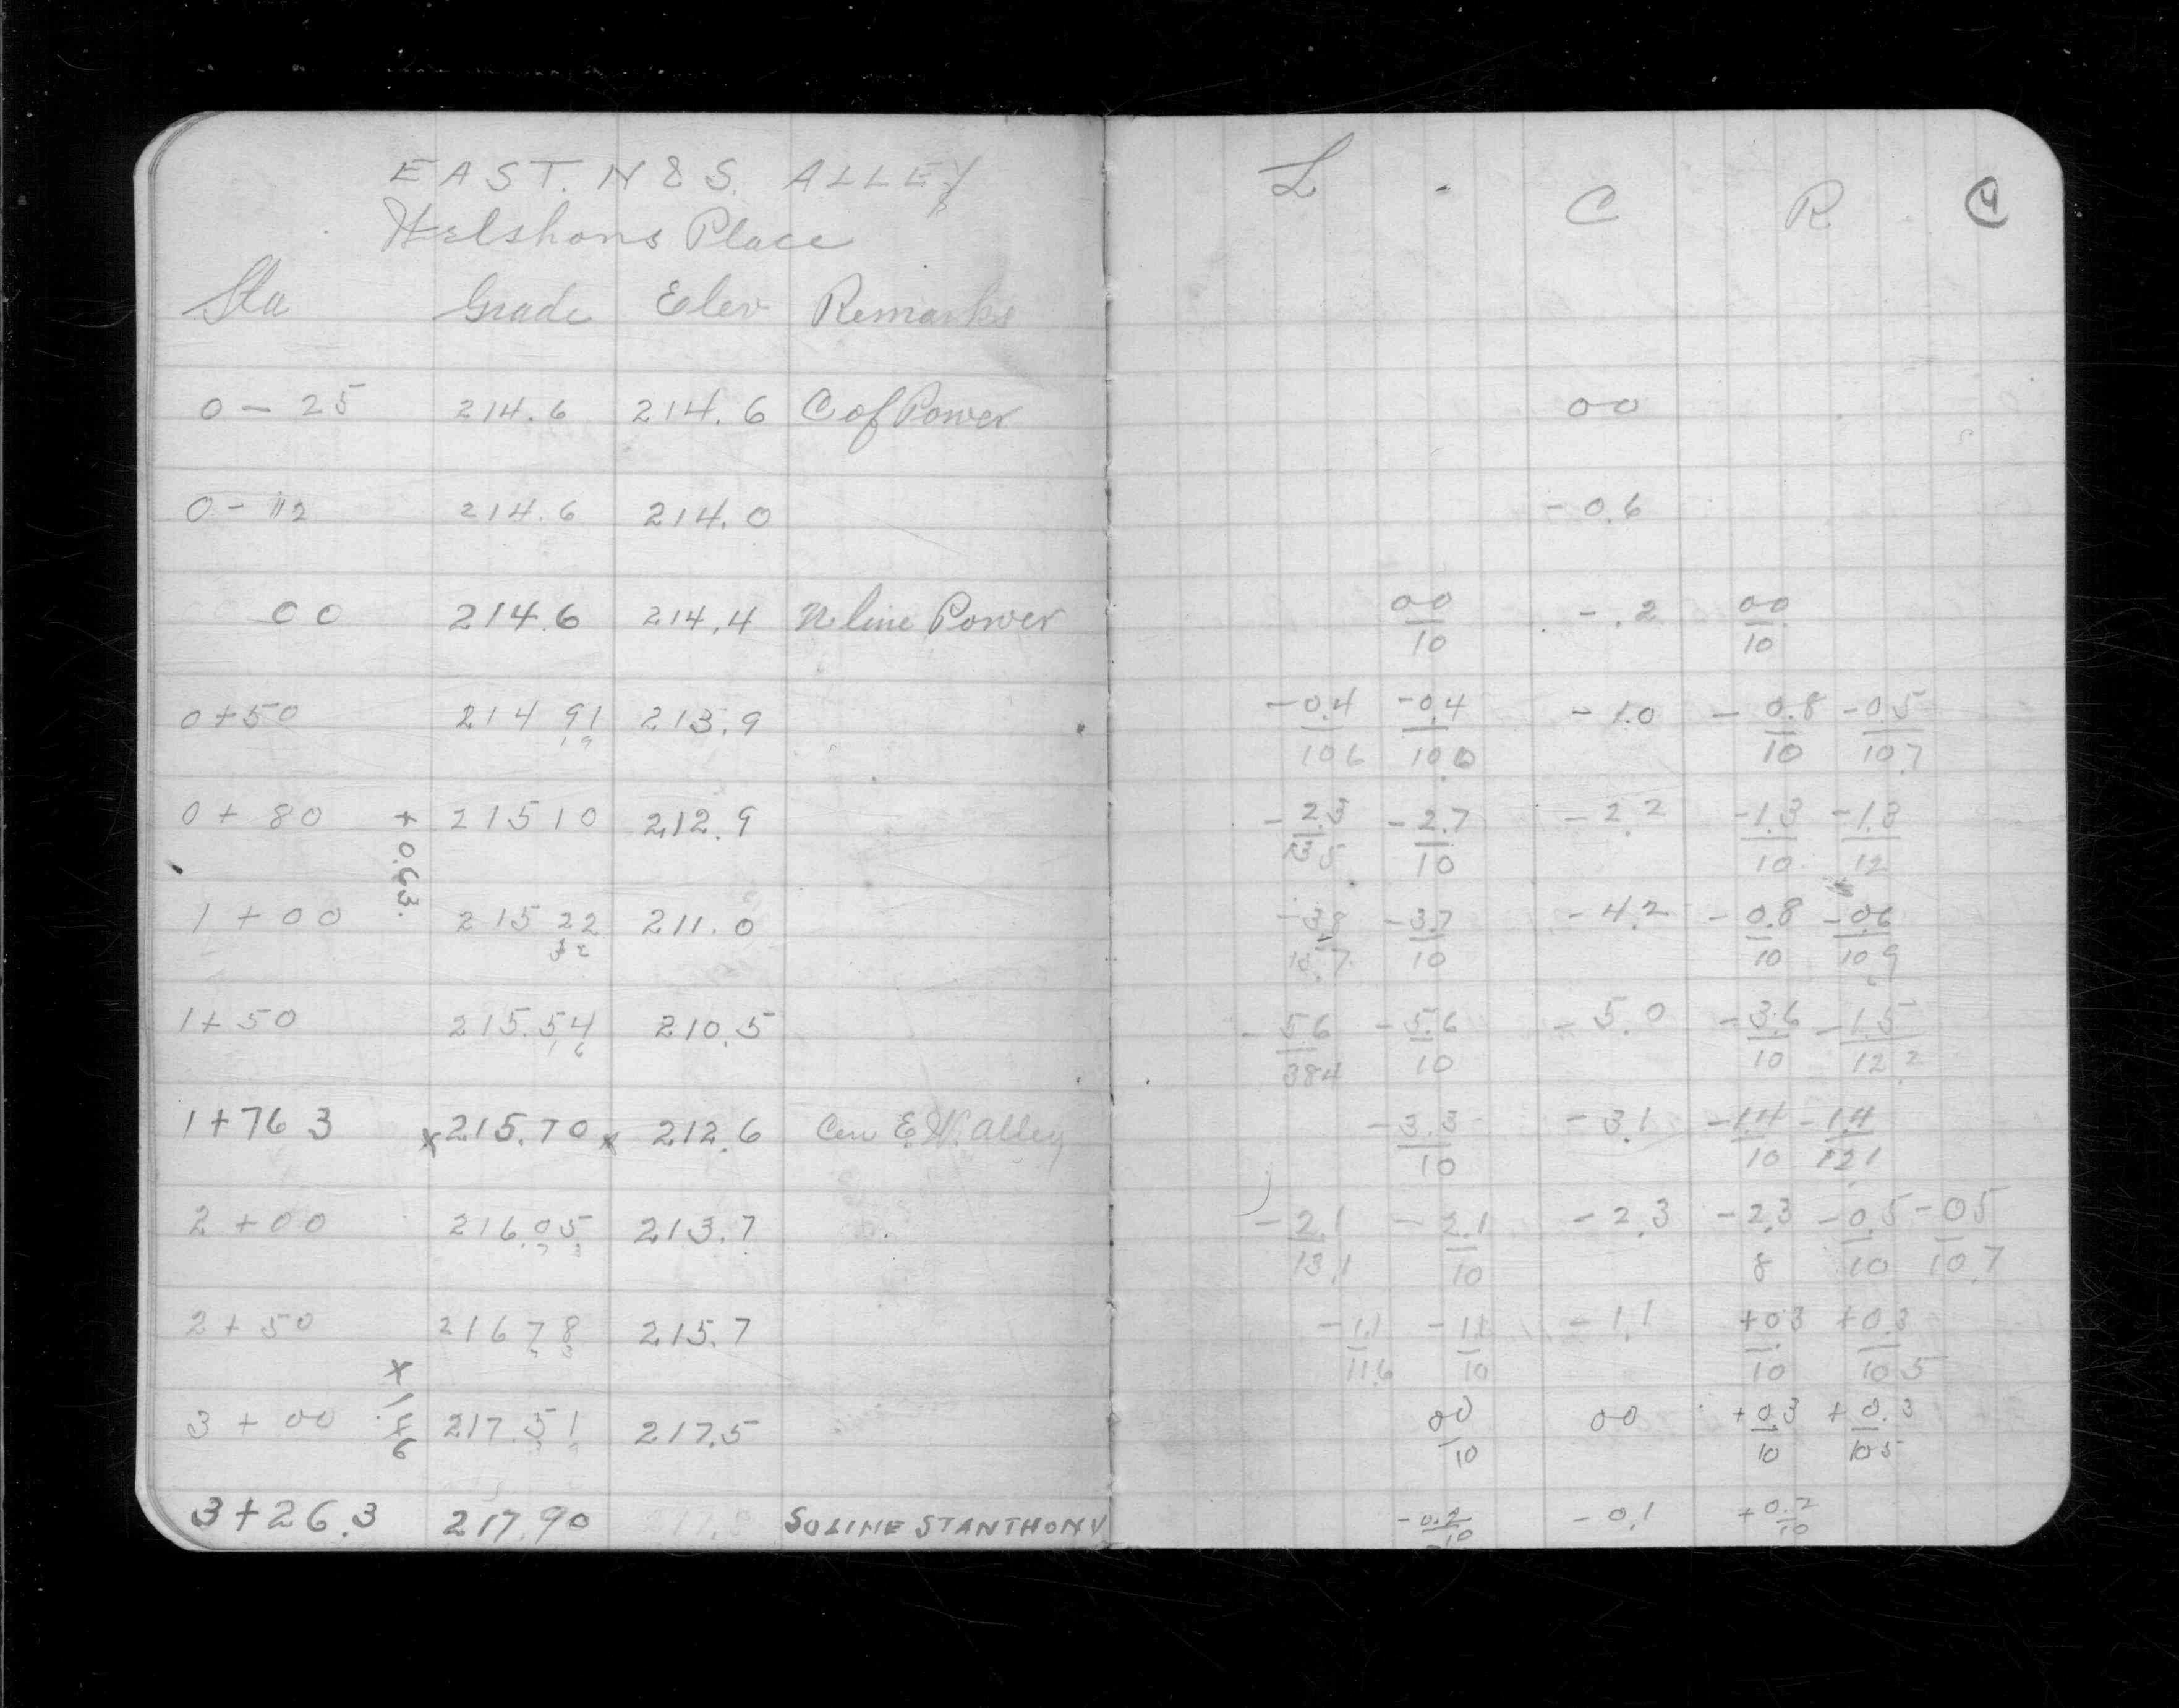 EAST. N & S. ALLEY
Place
Sta Grade Elev Remarks
0 - 25 214.6 214.6 C of Power
0 - 12 214.6 214.0
00 214.6 214.4 N line Power
0+50 214 91 213.9
0 + 80 215 10 212.9
+ 0.63.
1 + 00 215 22 211.0
1+50 215.54 210.5
1+76 3 x 215.70 x 212.6 Cen E.W. Alley
2 + 00 216.05 213.7
2 + 50 216 78 215.7
3 + 00 217.51 217.5
3+26.3 217.90 SOLINE STANTHONY
L C R 4
00
- 0.6
00/10 - .2 00/10
-0.4/10 6 -0.4/10 0 - 1.0 - 0.8/10 -0.5/10.7
- 2.3 - 2.7/10 - 2.2 -1.3/10 -1.3/12
-3.8 -3.7/10 - 4.2 - 0.8/10 -0.6/10.9
- 5.6/384 - 5.6/10 - 5.0 - 3.6/10 - 1.5/12 2
- 3.3/10 - 3.1 -1.4/10 - 1.4/12.1
- 2.1/13.1 - 2.1/10 - 2.3 - 2.3/8 - 0.5/10 - 05/10.7
- 1.1/11.6 - 1.1/10 - 1.1 +03/10 +0.3/10 5
00/10 00 +0.3/10 + 0.3/10 5
-0.2/10 - 0.1 +0.2/10